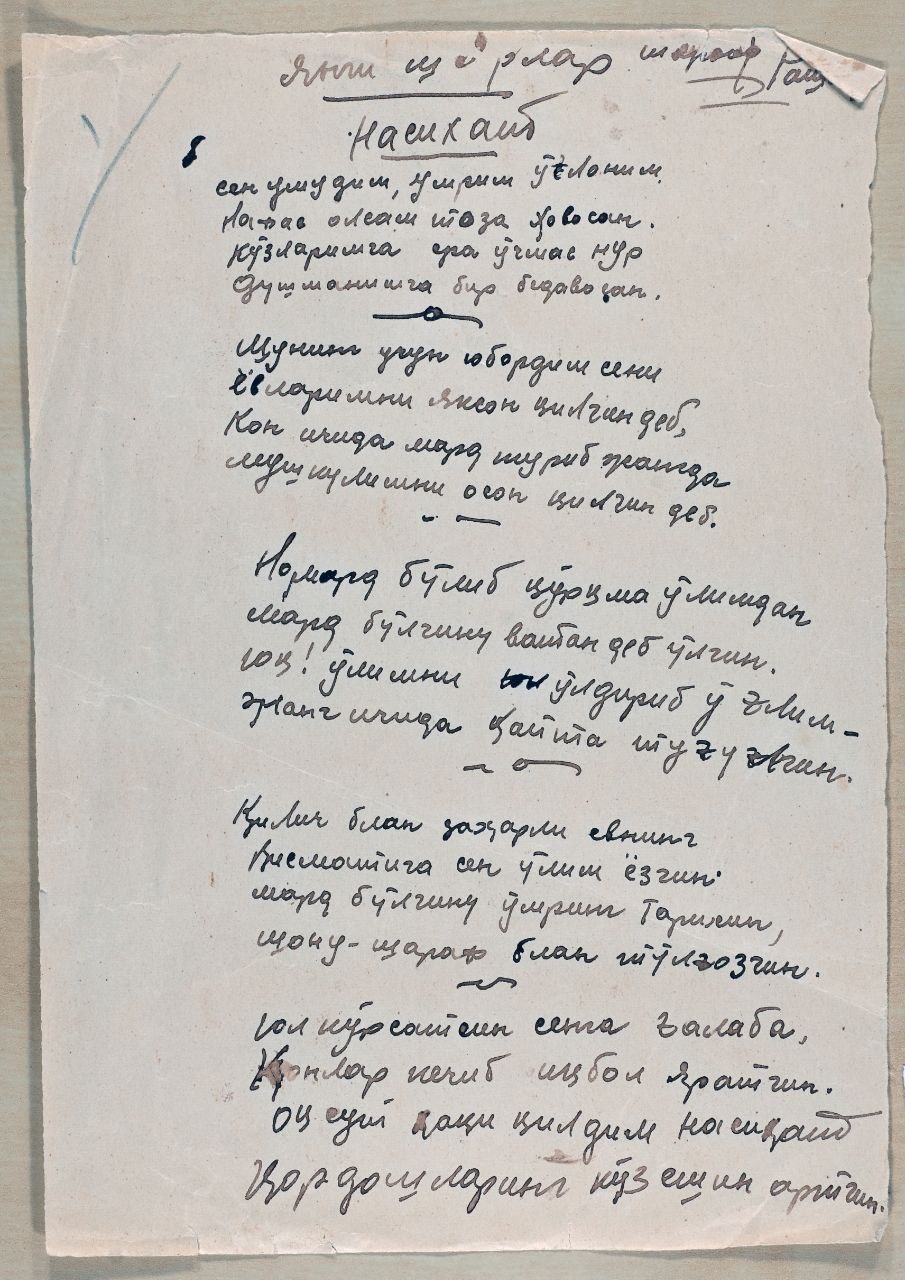 Янги шеърлар
Насихат
сен умидим, умрим ўғлоним
Нафас олсам тоза ҳовосан.
Кўзларимга сра ўчмас нур
Душманимга бир бедавосан.
Шунинг учун юбордим сени
Ёвларимни яксон қилгин деб,
Қон ичида мард туриб жангда
мушкулимни осон қилгин деб.
Номард бўлиб қўрқма ўлимдан
мард бўлгину ватан деб ўлгин.
Юқ! ўлимни ўлдириб ўғлим-
жанг ичида қайта туғулгин.
Қилич блан заҳарли евнинг
Қисматига сен ўлим ёзгин.
мард бўлгину ўмринг Тарихин,
шону-шараф блан тўлғозгин.
Юл кўрсатсин сенга ғалаба,
Қонлар кечиб иқбол яратгин.
Оқ сут ҳақи қилдим насиҳат
Қардошларинг кўз ёшин артгин.